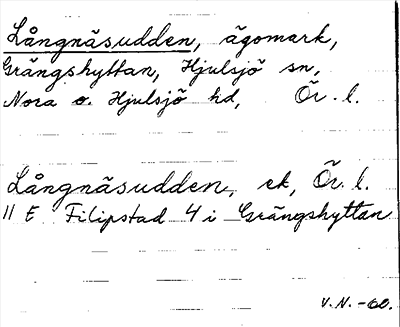 Långnäsudden, ägomark,
Grängshyttan, Hjulsjö sn,
Nora o. Hjulsjö hd, Ör. l.
Långnäsudden, ek, Ör. l.
11 E Filipstad 4 i Grängshyttan
V.N. -60.